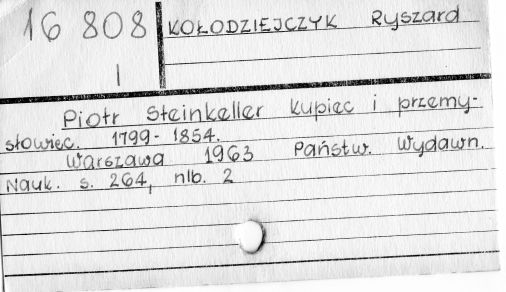 16 808
I
KOŁODZIEJCZYK Ryszard
Piotr Steinkeller kupiec i przemy-
słowiec. 1799-1854.
Warszawa 1963 Państw. Wydawn.
Nauk. s. 264, nlb. 2